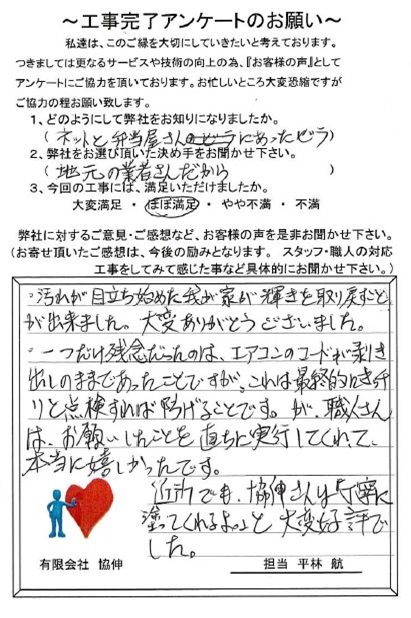 ～工事完了アンケートのお願い～
私達は、このご縁を大切にしていきたいと考えております。
つきましては更なるサービスや技術の向上の為、『お客様の声』として
アンケートにご協力を頂いております。お忙しいところ大変恐縮ですが
ご協力の程お願い致します。
1、どのようにして弊社をお知りになりましたか。
（ネットと弁当屋さんにあったビラ）
2、弊社をお選び頂いた決め手をお聞かせ下さい。
（地元の業者さんだから）
3、今回の工事には、満足いただけましたか。
大変満足 ・ ほぼ満足 ・ やや不満 ・ 不満
弊社に対するご意見・ご感想など、お客様の声を是非お聞かせ下さい。
（お寄せ頂いたご感想は、今後の励みとなります。 スタッフ・職人の対応
工事をしてみて感じた事など具体的にお聞かせ下さい。）
・汚れが目立ち始めた我が家が輝きを取り戻すこと
が出来ました。大変ありがとうございました。
・一つだけ残念だったのは、エアコンのコードが剥き
出しのままであったことですが、これは最終的にキッチ
リと点検すれば防げることです。が、職人さん
は、お願いしたことを直ちに実行してくれて、
本当に嬉しかったです。
近所でも、協伸さんは「丁寧に
塗ってくれるよ。」と大変好評で
した。
有限会社 協伸
担当 平林 航